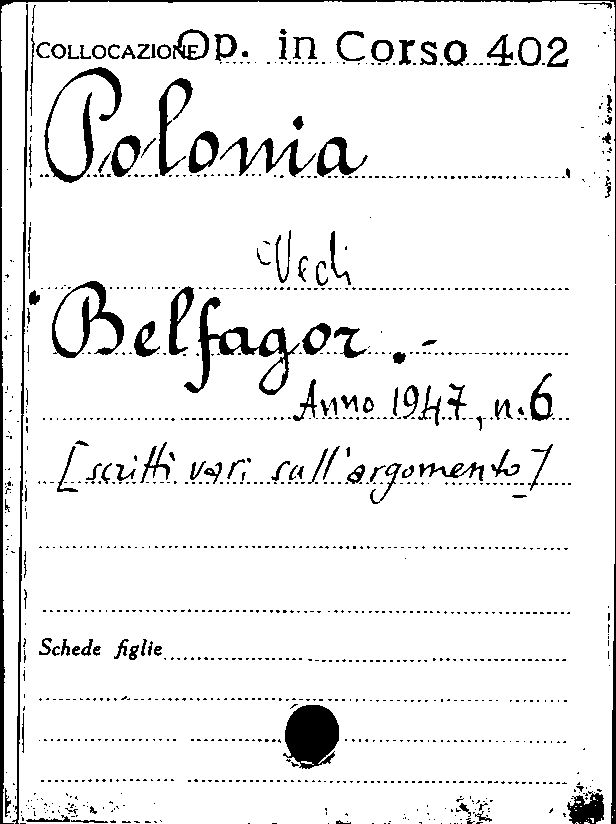 COLLOCAZIONE Op. in Corso 402
Polonia
Vedi
Belfagor.-
Anno 1947, n.6
[scritti vari sull'argomento]
Schede figlie